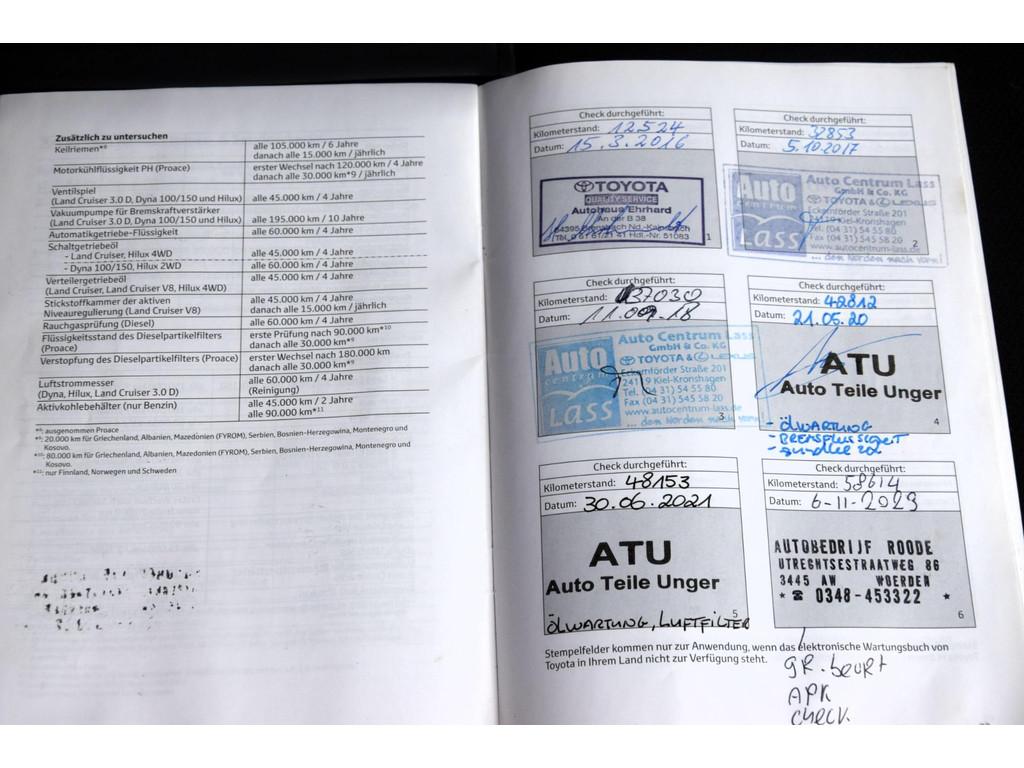 Zusätzlich zu untersuchen
Keilriemen*⁸ alle 105.000 km / 6 Jahre
danach alle 15.000 km / jährlich
Motorkühlflüssigkeit PH (Proace) erster Wechsel nach 120.000 km / 4 Jahre
danach alle 30.000 km*⁹ / jährlich
Ventilspiel
(Land Cruiser 3.0 D, Dyna 100/150 und Hilux) alle 45.000 km / 4 Jahre
Vakuumpumpe für Bremskraftverstärker
(Land Cruiser 3.0 D, Dyna 100/150 und Hilux) alle 195.000 km / 10 Jahre
Automatikgetriebe-Flüssigkeit alle 60.000 km / 4 Jahre
Schaltgetriebeöl
- Land Cruiser, Hilux 4WD alle 45.000 km / 4 Jahre
- Dyna 100/150, Hilux 2WD alle 60.000 km / 4 Jahre
Verteilergetriebeöl alle 45.000 km / 4 Jahre
(Land Cruiser, Land Cruiser V8, Hilux 4WD)
Stickstoffkammer der aktiven alle 45.000 km / 4 Jahre
Niveauregulierung (Land Cruiser V8) danach alle 15.000 km / jährlich
Rauchgasprüfung (Diesel) alle 60.000 km / 4 Jahre
Flüssigkeitsstand des Dieselpartikelfilters erste Prüfung nach 90.000 km*¹⁰
(Proace) danach alle 30.000 km*⁹
Verstopfung des Dieselpartikelfilters (Proace) erster Wechsel nach 180.000 km
danach alle 60.000 km*⁹
Luftstrommesser alle 60.000 km / 4 Jahre
(Dyna, Hilux, Land Cruiser 3.0 D) (Reinigung)
Aktivkohlebehälter (nur Benzin) alle 45.000 km / 2 Jahre
alle 90.000 km*¹¹
*⁸: ausgenommen Proace
*⁹: 20.000 km für Griechenland, Albanien, Mazedonien (FYROM), Serbien, Bosnien-Herzegowina, Montenegro und
Kosovo.
*¹⁰: 80.000 km für Griechenland, Albanien, Mazedonien (FYROM), Serbien, Bosnien-Herzegowina, Montenegro und
Kosovo.
*¹¹: nur Finnland, Norwegen und Schweden
Check durchgeführt:
Kilometerstand: 12524
Datum: 15.3.2016
TOYOTA
QUALITY SERVICE
Autohaus Ehrhard
An der B 38
1
Check durchgeführt:
Kilometerstand: 32853
Datum: 5.10.2017
Auto
centrum
Lass
Auto Centrum Lass
GmbH & Co. KG
TOYOTA & LEXUS
Eckernförder Straße 201
Kiel-Kronshagen
Tel. (04 31) 54 55 80
Fax (04 31) 545 58 20
www.autocentrum-lass.de
... dem Norden nach vorn!
2
Check durchgeführt:
Kilometerstand: 37030
Datum: 11.09.18
Auto
centrum
Lass
Auto Centrum Lass
GmbH & Co. KG
TOYOTA & LEXUS
Eckernförder Straße 201
24119 Kiel-Kronshagen
Tel. (04 31) 54 55 80
Fax (04 31) 545 58 20
www.autocentrum-lass.de
... dem Norden nach vorn!
3
Check durchgeführt:
Kilometerstand: 42812
Datum: 21.05.20
ATU
Auto Teile Unger
4
- ÖLWARTUNG
- BREMSFLÜSSIGKEIT
Check durchgeführt:
Kilometerstand: 48153
Datum: 30.06.2021
ATU
Auto Teile Unger
5
ÖLWARTUNG, LUFTFILTER
Check durchgeführt:
Kilometerstand: 58614
Datum: 6-11-2023
AUTOBEDRIJF ROODE
UTRECHTSESTRAATWEG 86
3445 AW WOERDEN
* ☎ 0348-453322 *
6
Stempelfelder kommen nur zur Anwendung, wenn das elektronische Wartungsbuch von
Toyota in Ihrem Land nicht zur Verfügung steht.
GR. beurt
APK
CHECK.